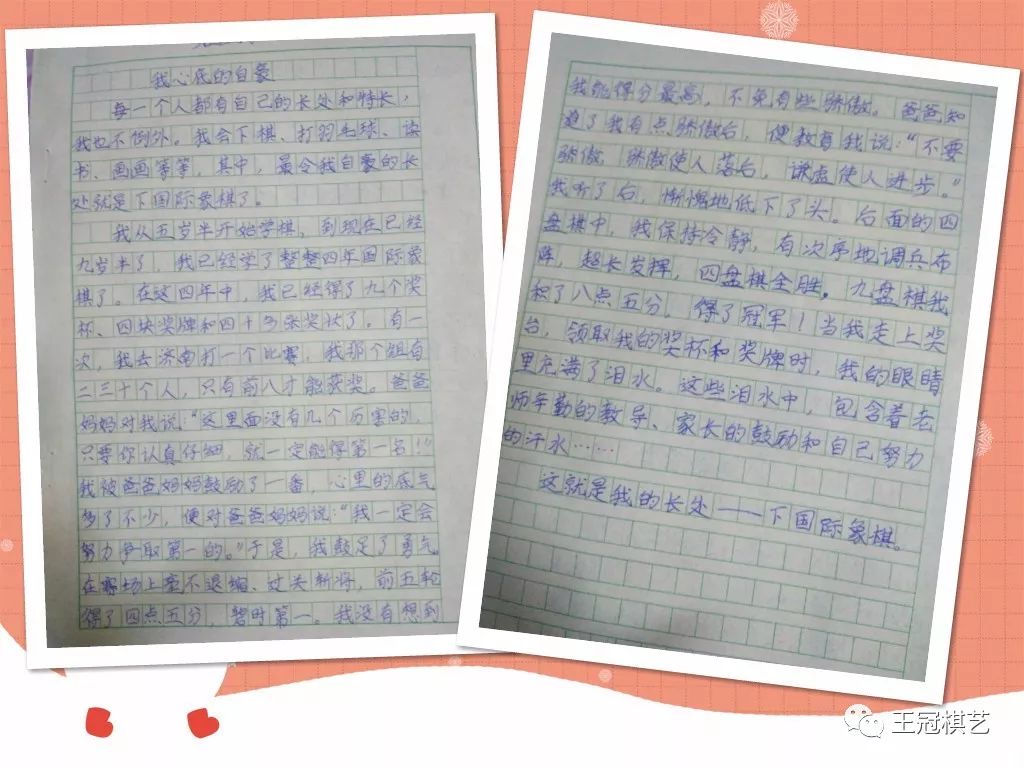 我心底的自豪
每一个人都有自己的长处和特长，
我也不例外。我会下棋、打羽毛球、读
书、画画等等，其中，最令我自豪的长
处就是下国际象棋了。
我从五岁半开始学棋，到现在已经
九岁半了，我已经学了整整四年国际象
棋了。在这四年中，我已经得了九个奖
杯、四块奖牌和四十多张奖状了。有一
次，我去济南打一个比赛，我那个组有
二三十个人，只有前八才能获奖。爸爸
妈妈对我说：“这里面没有几个厉害的，
只要你认真仔细，就一定能得第一名！”
我被爸爸妈妈鼓励了一番，心里的底气
多了不少，便对爸爸妈妈说：“我一定会
努力争取第一的。”于是，我鼓足了勇气
在赛场上毫不退缩、过关斩将，前五轮
得了四点五分，暂时第一。我没有想到
我能得分最高，不免有些骄傲。爸爸知
道了我有点骄傲后，便教育我说：“不要
骄傲，骄傲使人落后，谦虚使人进步。”
我听了后，惭愧地低下了头。后面的四
盘棋中，我保持冷静，有次序地调兵布
阵，超长发挥，四盘棋全胜。九盘棋我
积了八点五分，得了冠军！当我走上奖
台，领取我的奖杯和奖牌时，我的眼睛
里充满了泪水。这些泪水中，包含着老
师辛勤的教导、家长的鼓励和自己努力
的汗水……
这就是我的长处——下国际象棋。
王冠棋艺